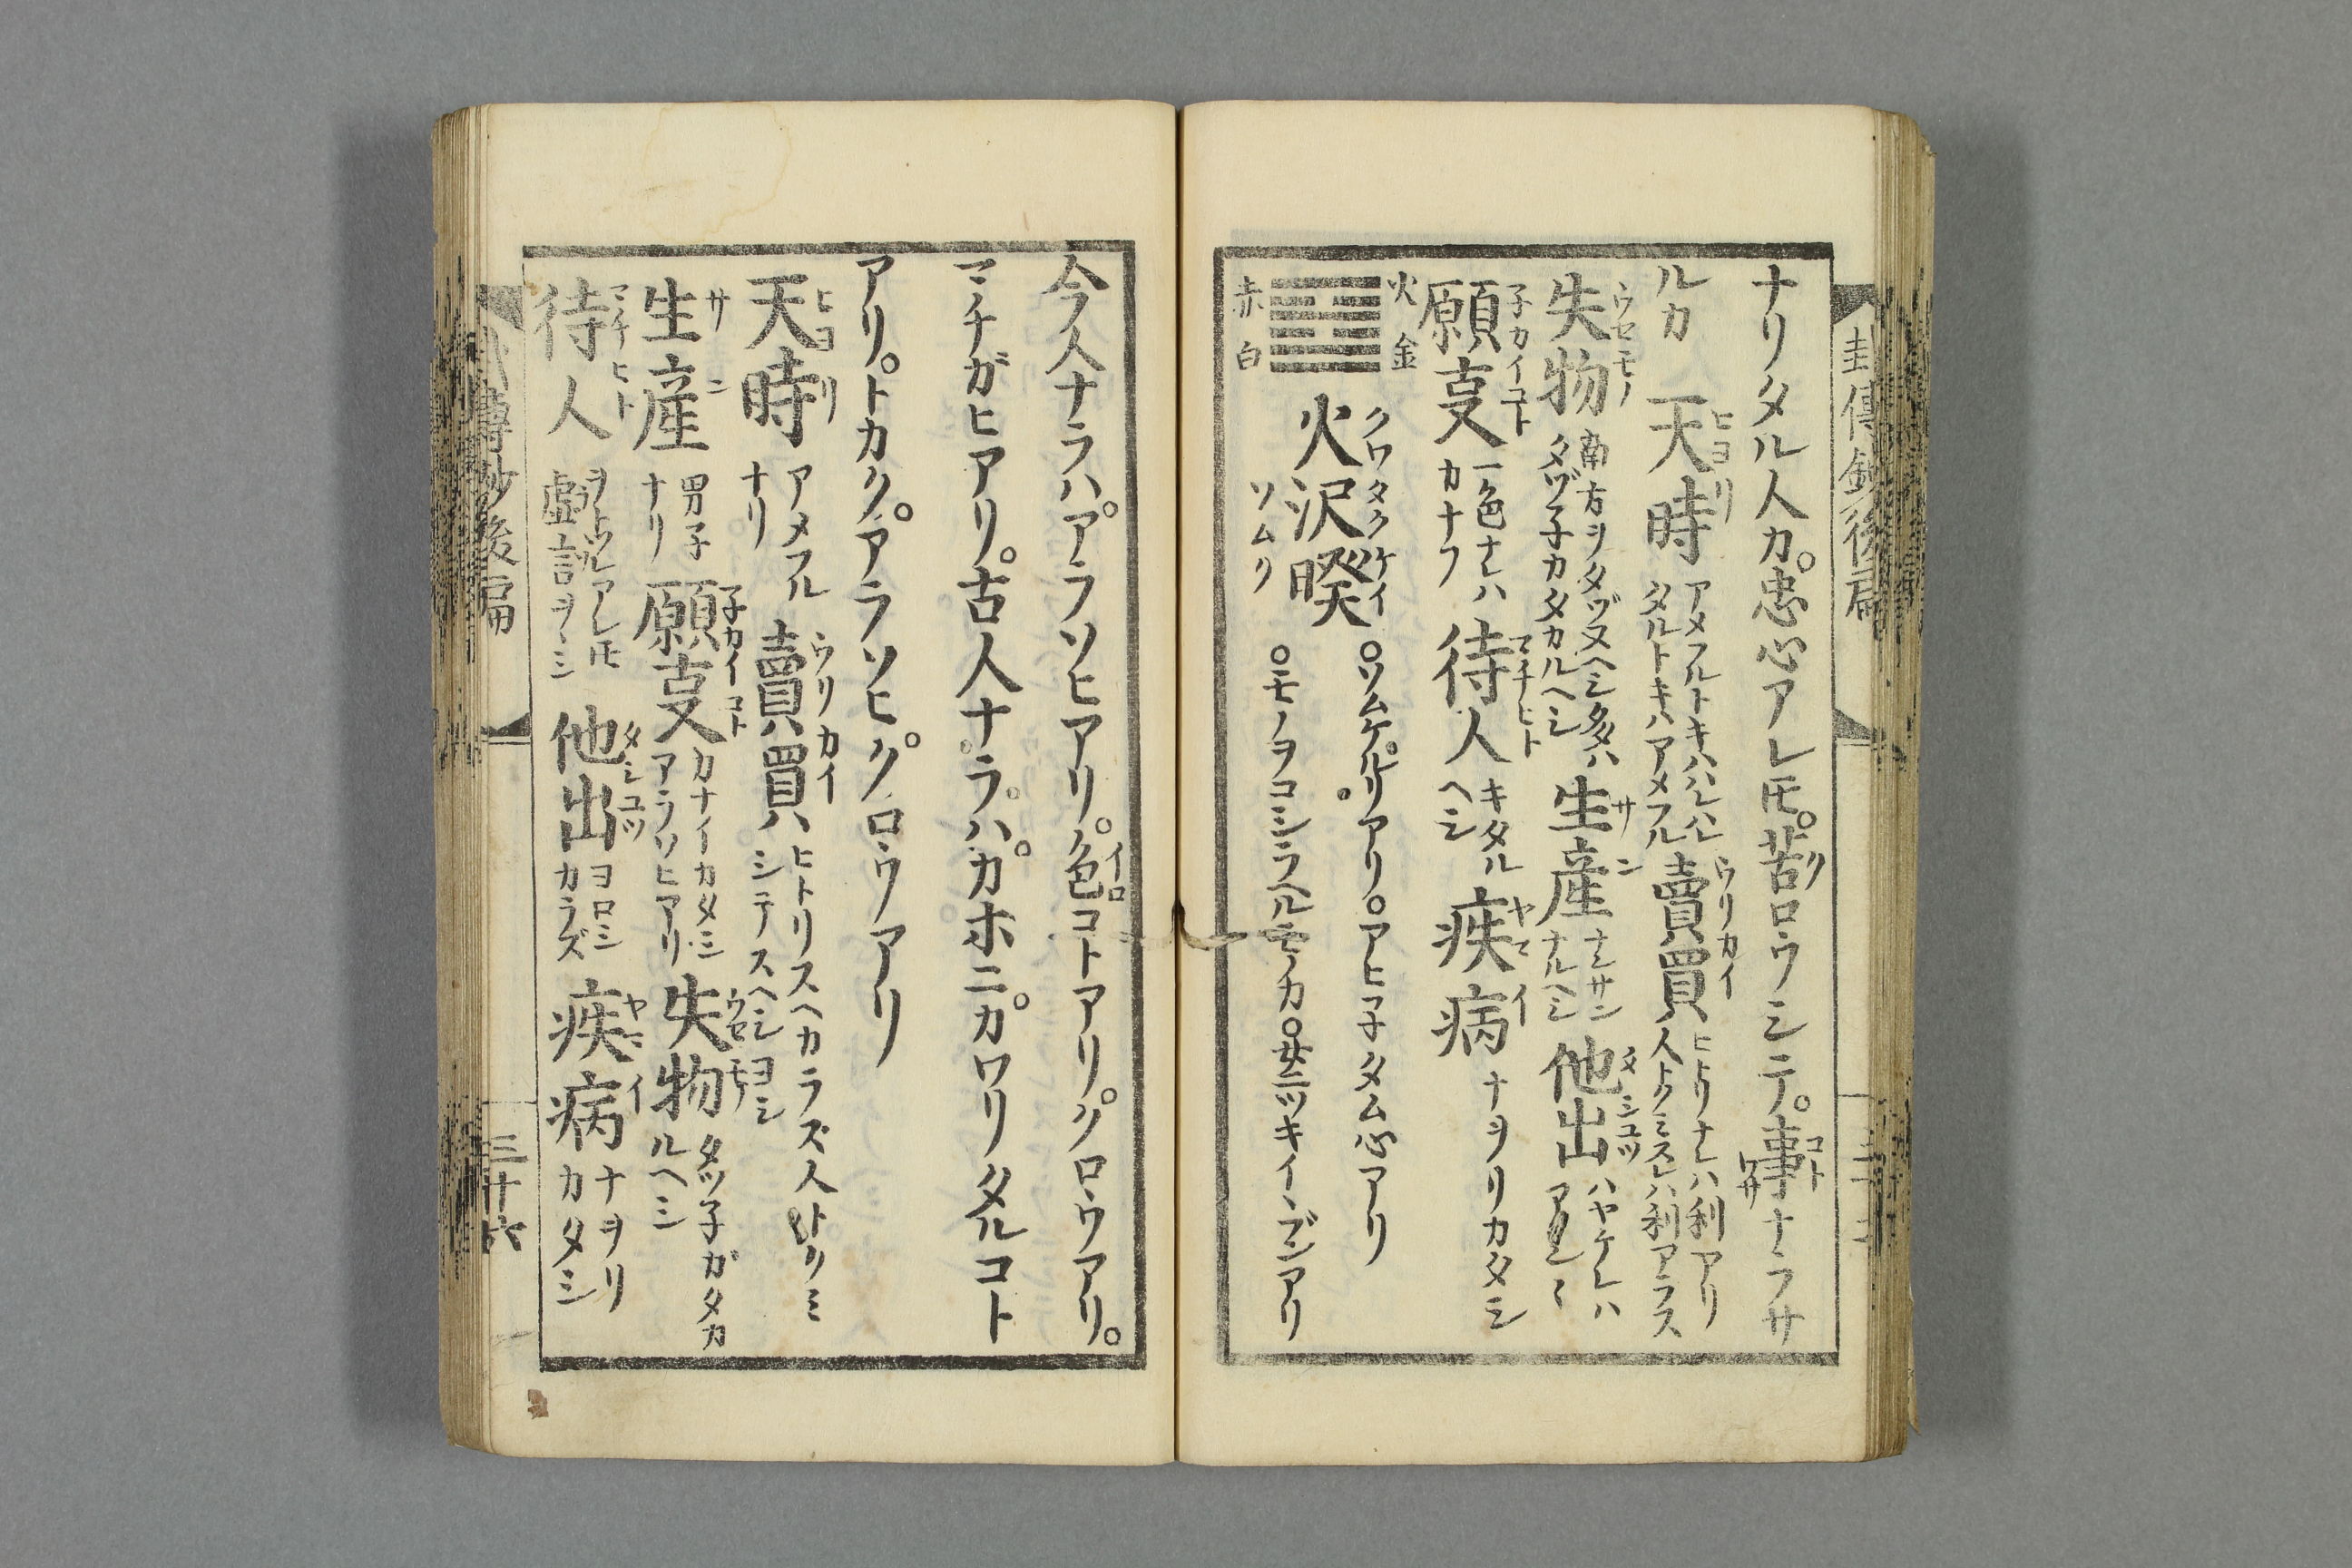 圭傳鈔後扁
ナリタル人カ。忠心アレ𪜈。苦ロウシテ。事ナラフサ
ルカ 天時 アメフルトキハハレハレ タルトキハアメフル 賣買 ヒトリナレハ利アリ 人トクミスレハ利アラス
失物 南方ヲタヅヌヘシ多ハ タヅ子カタカルヘシ 生産 ナンサン ナルヘシ 他出 ハヤケレハ
願㕝 一色ナレハ カナフ 待人 キタル ヘシ 疾病 ナヲリカタシ
火 金
クワタクケイ
火沢睽
ソムク
赤 白
○ソムケルリアリ。○アヒマ子タム心アリ
○モノヲコシラヘルモノカ○サニツキイヽブンアリ
今人ナラハ。アラソヒアリ。色コトアリ。クロウアリ。
マチガヒアリ。古人ナラハ。カホニ。カワリタルコト
アリ。トカク。アラソヒ。クロウアリ
天時 アメフル ナリ 賣買ハ ヒトリスヘカラズ人トクミ シテスヘシヨシ
生産 男子 ナリ 願㕝 カナイカタシ アラソヒアリ 失物 タツ子ガタカ ルヘシ
待人 ヲトヅレアレ𪜈 虚言ヲヽシ 他出 ヨロシ カラズ 疾病 ナヲリ カタシ
傳鈔後扁
三十六